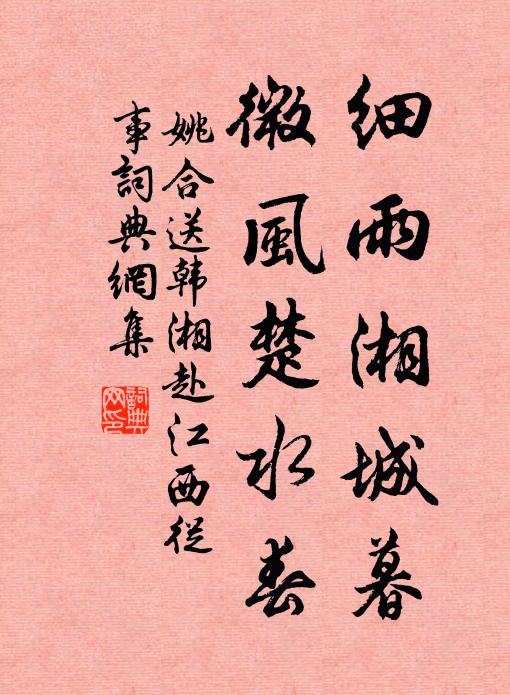 細雨湘城暮
微風楚水春
姚合送韩湘赴江西從
事詞典網集
詞典
网印